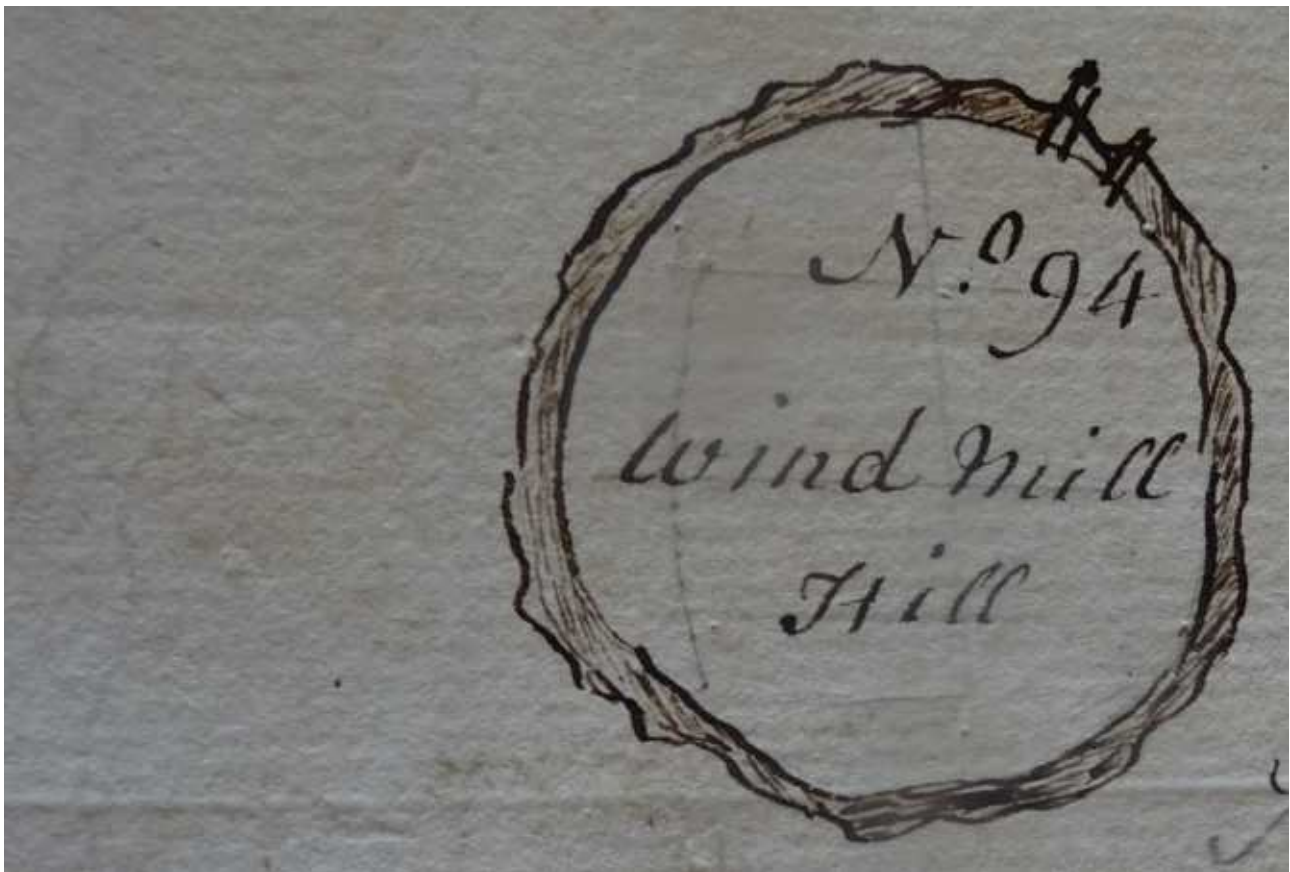 N.º 94
Wind Mill
Hill